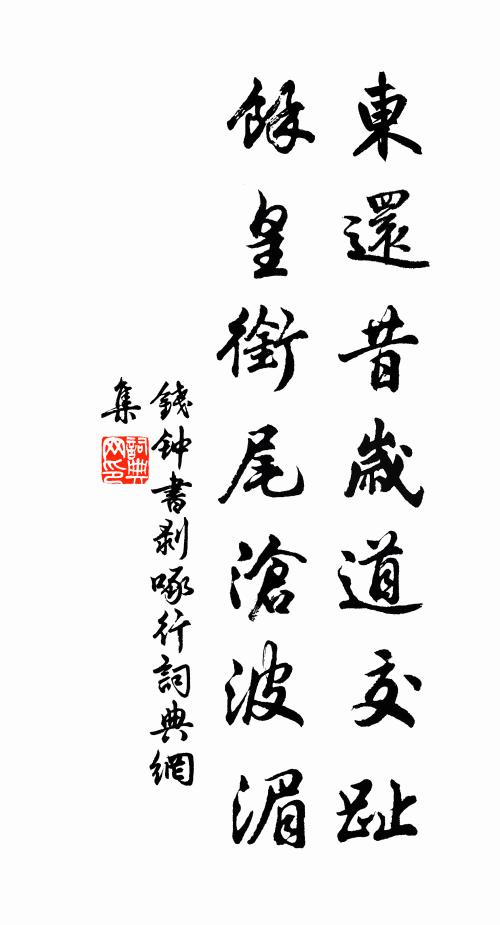 東還昔歲道交趾
餘皇銜尾滄波湄
錢钟書剝啄行詞典網
集
詞典网印